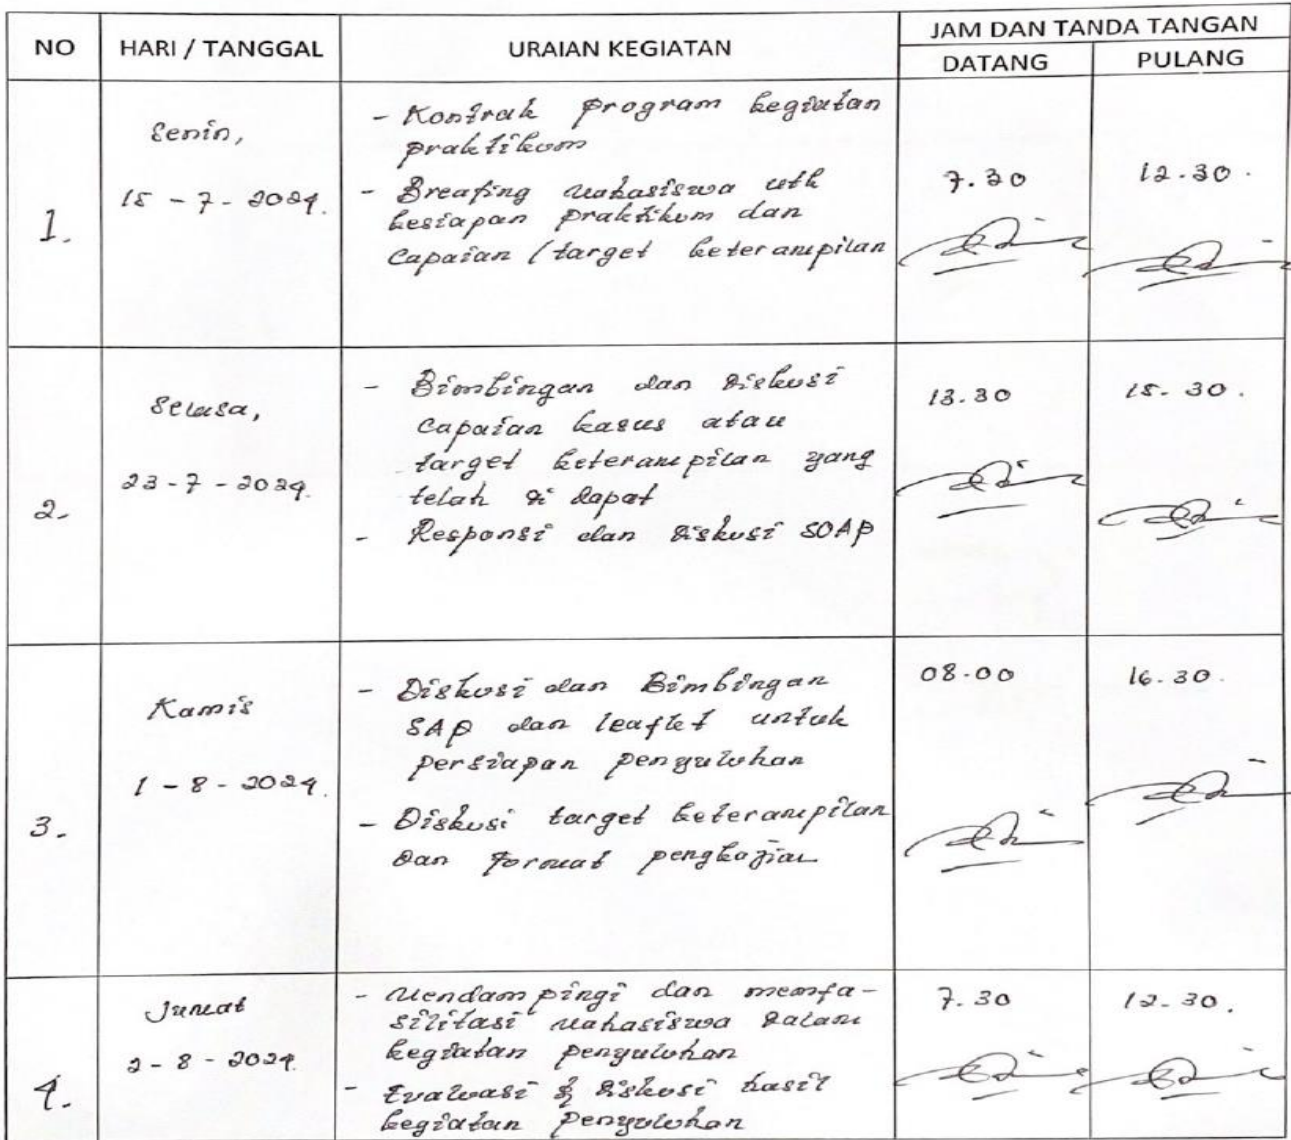 NO HARI / TANGGAL URAIAN KEGIATAN JAM DAN TANDA TANGAN
DATANG PULANG
1.
Senin,
15 - 7 - 2024.
- Kontrak program kegiatan
praktikum
- Breafing mahasiswa utk
kesiapan praktikum dan
Capaian / target keterampilan
7.30
12.30.
2.
Selasa,
23 - 7 - 2024.
- Bimbingan dan Diskusi
Capaian kasus atau
target keterampilan yang
telah di dapat
- Responsi dan Diskusi SOAP
13.30
15.30.
3.
Kamis
1 - 8 - 2024.
- Diskusi dan Bimbingan
SAP dan leaflet untuk
persiapan penyuluhan
- Diskusi target keterampilan
Dan Format pengkajian
08.00
16.30.
4.
Jumat
2 - 8 - 2024.
- Mendampingi dan memfa-
silitasi mahasiswa dalam
kegiatan penyuluhan
- Evaluasi & Diskusi hasil
kegiatan penyuluhan
7.30
12.30.